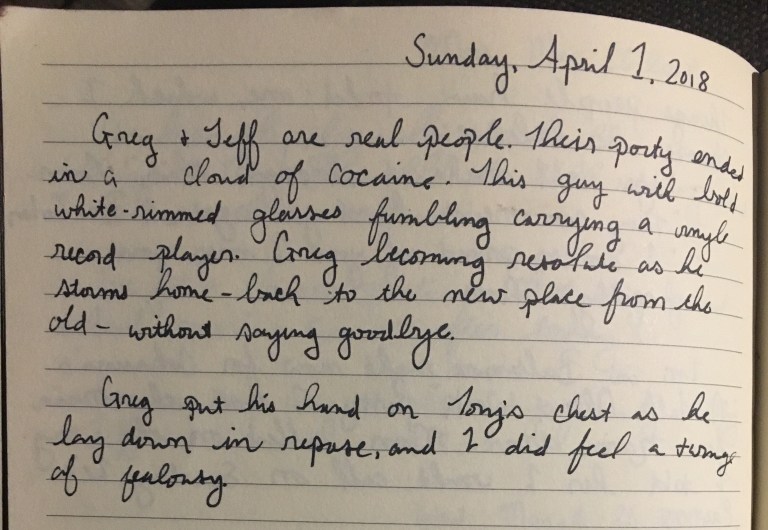 Sunday, April 1, 2018
Greg + Jeff are real people. Their party ended
in a cloud of cocaine. This guy with bold
white-rimmed glasses fumbling carrying a
record player. Greg becoming resolute as he
storms home - back to the new place from the
old - without saying goodbye.
Greg put his hand on Tony's chest as he
lay down in repose, and I did feel a twinge
of jealousy.